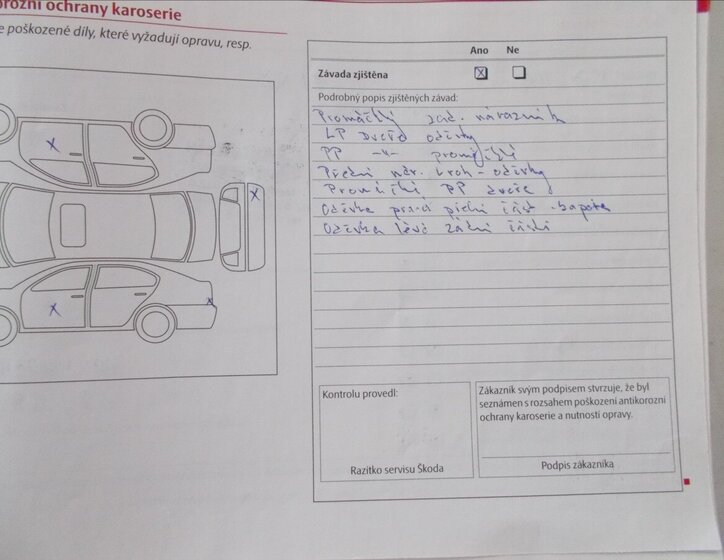 rozní ochrany karoserie
e poškozené díly, které vyžadují opravu, resp.
Ano Ne
Závada zjištěna
X
Podrobný popis zjištěných závad:
Promáčklý zad. nárazník
LP dveře oděrky
PP -"-
Přední nár. - oděrky
PP dveře
Oděrka pravá přední část
Oděrka levá zadní část
Kontrolu provedl:
Razítko servisu Škoda
Zákazník svým podpisem stvrzuje, že byl
seznámen s rozsahem poškození antikorozní
ochrany karoserie a nutností opravy.
Podpis zákazníka